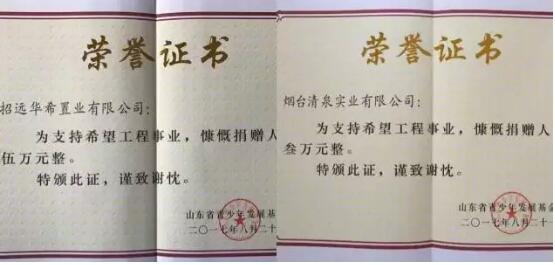 荣誉证书
招远华希置业有限公司：
为支持希望工程事业，慷慨捐赠人
伍万元整。
特颁此证，谨致谢忱。
山东省青少年发展基
二〇一七年八月二十
荣誉证书
烟台清泉实业有限公司：
为支持希望工程事业，慷慨捐赠人
叁万元整。
特颁此证，谨致谢忱。
山东省青少年发展基金
二〇一七年八月二十